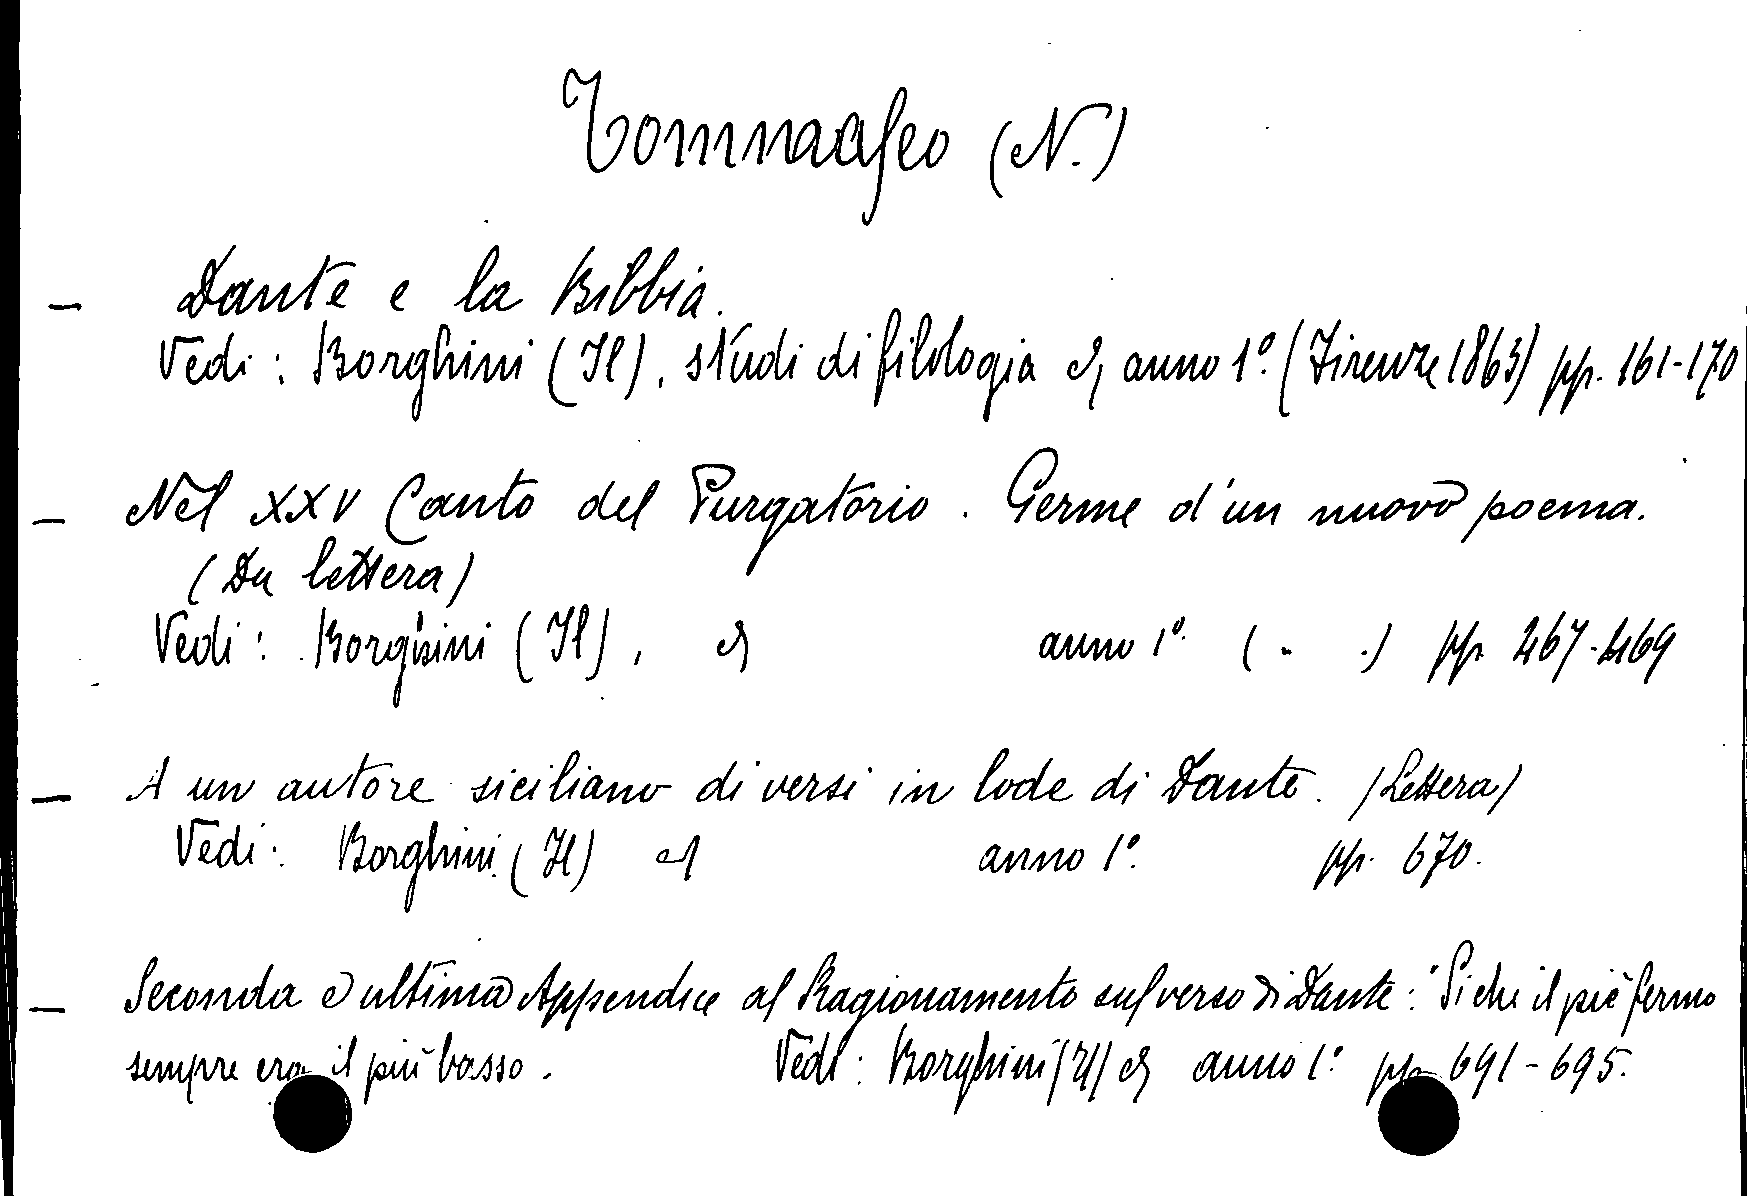 Tommaseo (N.)
— Dante e la Bibbia.
Vedi: Borghini (Il), studi di filologia &, anno 1º. (Firenze 1863) pp. 161-170
— Nel XXV Canto del Purgatorio. Germe d'un nuovo poema.
(Da lettera)
Vedi: Borghini (Il), & anno 1º. (" ") pp. 467-469
— A un autore siciliano di versi in lode di Dante. (Lettera)
Vedi: Borghini (Il) & anno 1º. pp. 670.
— Seconda e ultima Appendice al Ragionamento sul verso di Dante: "Si che il piè fermo
sempre era il più basso. Vedi: Borghini (Il) & anno 1º. pp. 691-695.